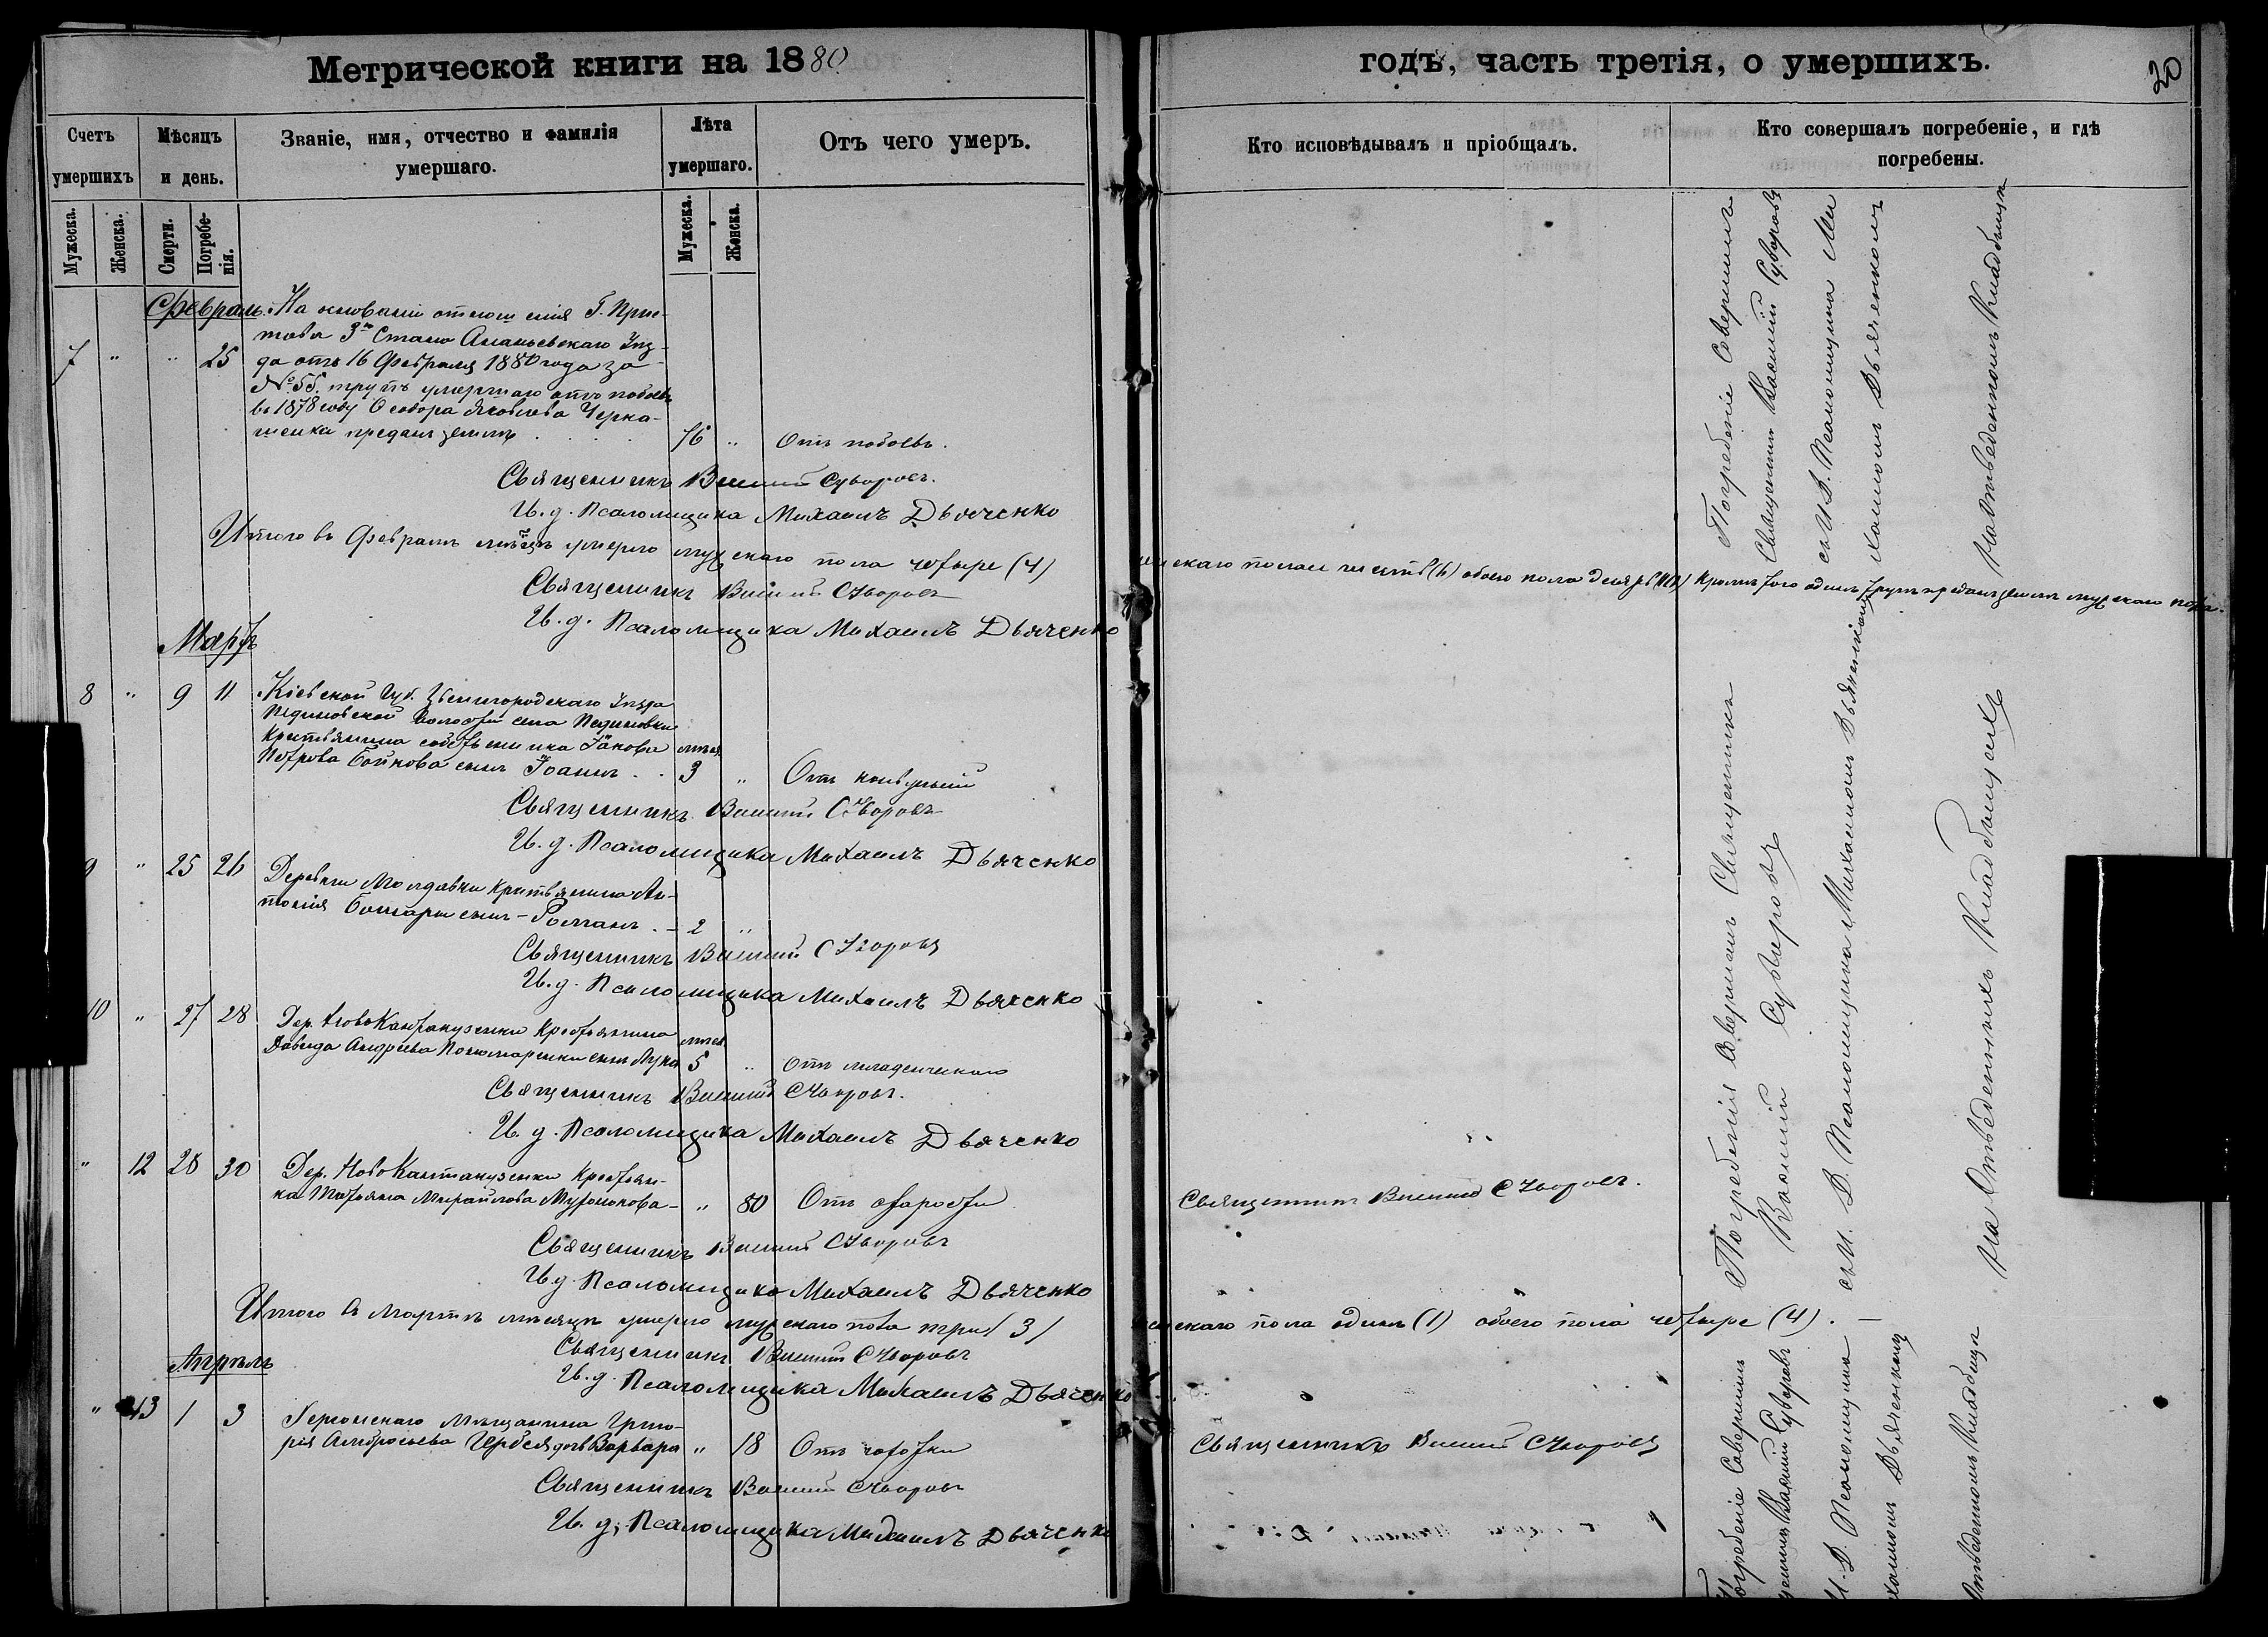 Метрической книги на 1880
Счетъ умершихъ
Мѣсяцъ и день.
Званіе, имя, отчество и фамилія умершаго.
Лѣта умершаго.
Отъ чего умеръ.
Мужеска.
Женска.
Смерти.
Погребенія.
Мужеска.
Женска.
Февраль.
На основаніи отношенія Г. Прис-
7 " " 25
тава 3го Стана Ананьевскаго Уѣз-
да отъ 16 Февраля 1880 года за
№ 55. трупъ умершаго отъ побоевъ
въ 1878 году Ѳеодора Яковлева Черка-
шенка преданъ землѣ 76 " Отъ побоевъ.
Священникъ Василій Суворовъ.
И. д. Псаломщика Михаилъ Дьяченко
Итого въ Февралѣ мѣсяцѣ умерло мужескаго пола четыре (4)
Священникъ Василій Суворовъ
И. д. Псаломщика Михаилъ Дьяченко
Мартъ
8 " 9 11 Кіевской Губ. Звенигородскаго Уѣзда
Пединовской Волости села Пединовки
Крестьянина собственника Іакова мѣся.
Петрова Бойкова сынъ Іоаннъ 3 " Отъ конвульсій
Священникъ Василій Суворовъ
И. д. Псаломщика Михаилъ Дьяченко
9 " 25 26 Деревни Молдавки Крестьянина Ан-
тонія Болгари сынъ - Романъ - 2 "
Священникъ Василій Суворовъ
И. д. Псаломщика Михаилъ Дьяченко
10 " 27 28 Дер. Ново Кантакузенки Крестьянина мѣся.
Давида Андреева Пономаренки сынъ Лука 5 " Отъ младенческаго
Священникъ Василій Суворовъ.
И. д. Псаломщика Михаилъ Дьяченко
" 12 28 30 Дер. Ново Кантакузенки Крестьян-
ка Татьяна Михайлова - " 80 Отъ старости
Священникъ Василій Суворовъ
И. д. Псаломщика Михаилъ Дьяченко
Итого въ Мартѣ мѣсяцѣ умерло мужескаго пола три (3)
Священникъ Василій Суворовъ
И. д. Псаломщика Михаилъ Дьяченко
Апрѣль
" 13 1 3 Херсонскаго Мѣщанина Григо-
рія Амвросьева дочь Варвара " 18 Отъ чахотки
Священникъ Василій Суворовъ
И. д. Псаломщика Михаилъ Дьяченко
годъ, часть третія, о умершихъ.
20
Кто исповѣдывалъ и пріобщалъ.
Кто совершалъ погребеніе, и гдѣ погребены.
Погребеніе Совершилъ
Священникъ Василій Суворовъ
съ И. Д. Псаломщика Ми
хаиломъ Дьяченкомъ
На отведенномъ Кладбищѣ
женскаго пола шесть (6) обоего пола десять (10) Кромѣ того одинъ трупъ преданъ землѣ мужескаго пола.
Погребенія Совершалъ Священникъ
Василій Суворовъ
съ И. Д. Псаломщика Михаиломъ Дьяченкомъ
На Отведенныхъ Кладбищахъ
Священникъ Василій Суворовъ.
женскаго пола одинъ (1) обоего пола четыре (4). -
Священникъ Василій Суворовъ
Погребеніе Совершилъ
Священникъ Василій Суворовъ
И. Д. Псаломщика
Михаиломъ Дьяченкомъ
Отведенномъ Кладбищѣ